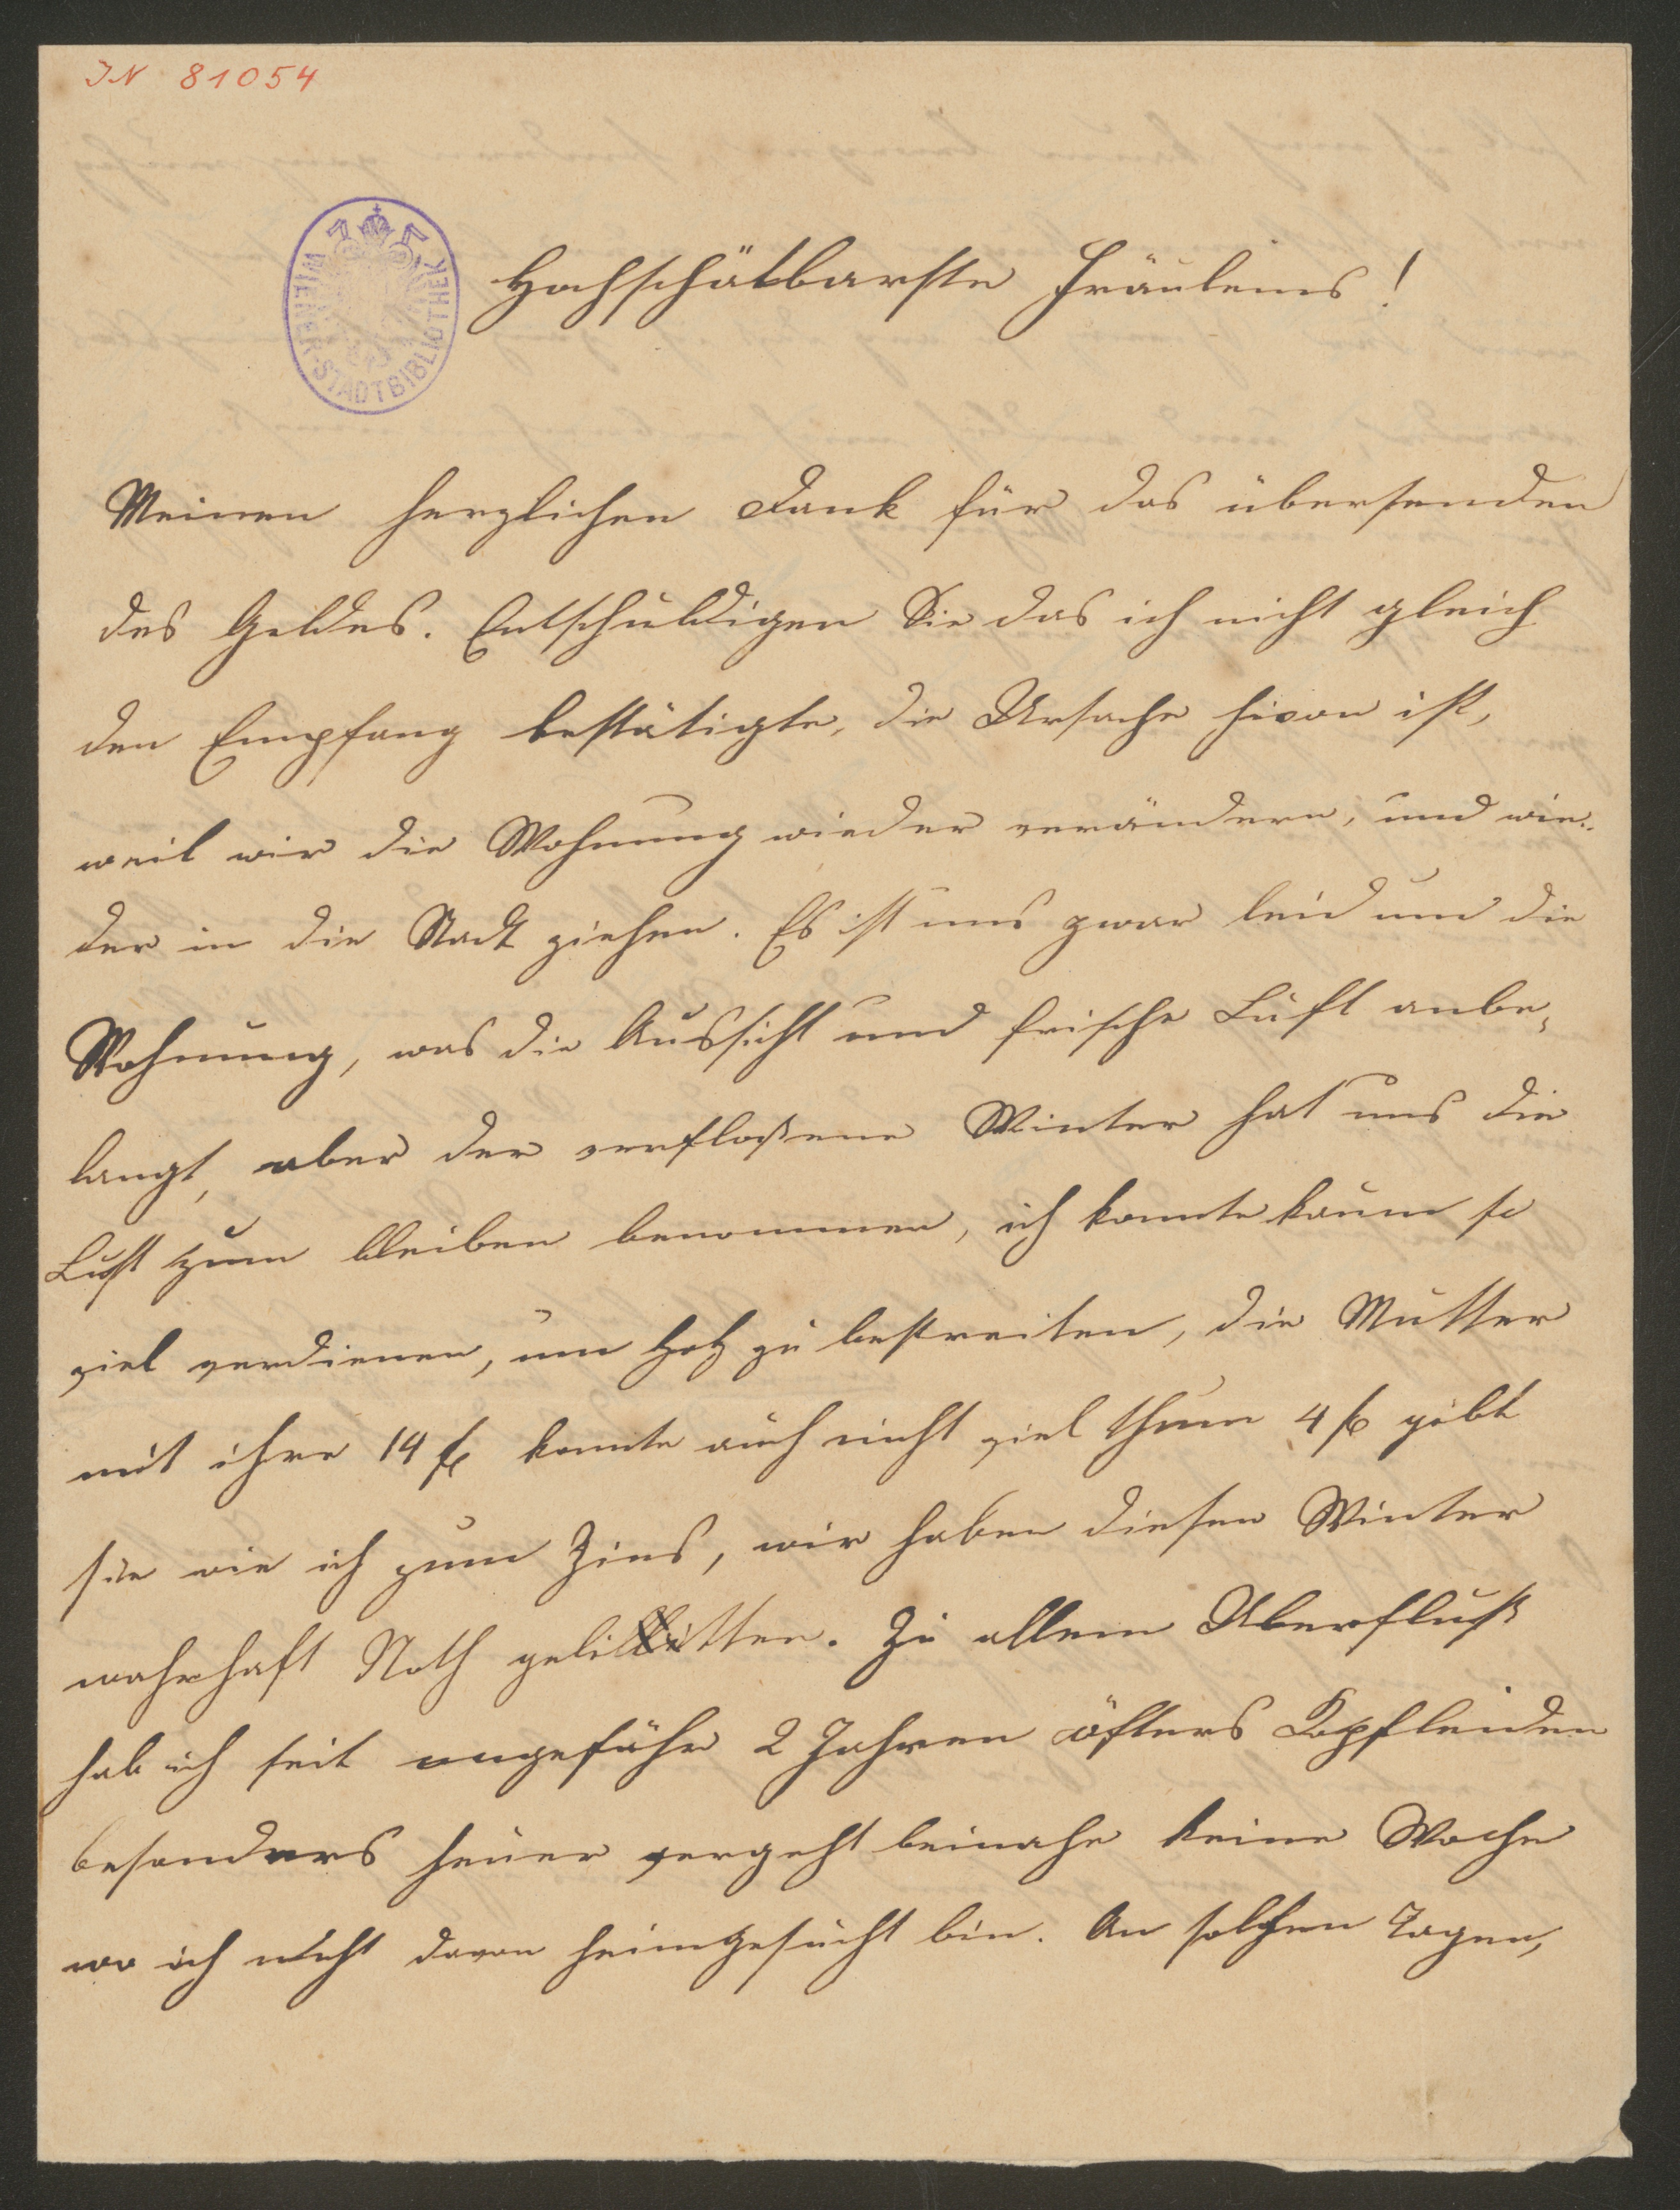 IN 81054
WIENER-STADTBIBLIOTHEK
Hochschätbarste Fräuleins!
Meinen herzlichen Dank für das übersenden
des Geldes. Entschuldigen Sie das ich nicht gleich
den Empfang bestätigte, die Ursache hivon ist,
weil wir die Wohnung wieder verändern, und wie-
der in die Stadt ziehen. Es ist uns zwar leid um die
Wohnung, was die Aussicht und frische Luft anbe-
langt, aber der verfloßene Winter hat uns die
Lust zum bleiben benommen, ich konnte kaum so
viel verdienen, um Holz zu bestreiten, die Mutter
mit ihre 14 fl konnte auch nicht viel thun 4 fl gibt
sie wie ich zum Zins, wir haben diesen Winter
wahrhaft Noth gelitten. Zu allem Überfluß
hab ich seit ungefähr 2 Jahren öfters Kopfleiden
besonders heuer vergeht beinahe keine Woche
wo ich nicht davon heimgesucht bin. An solchen Tagen,